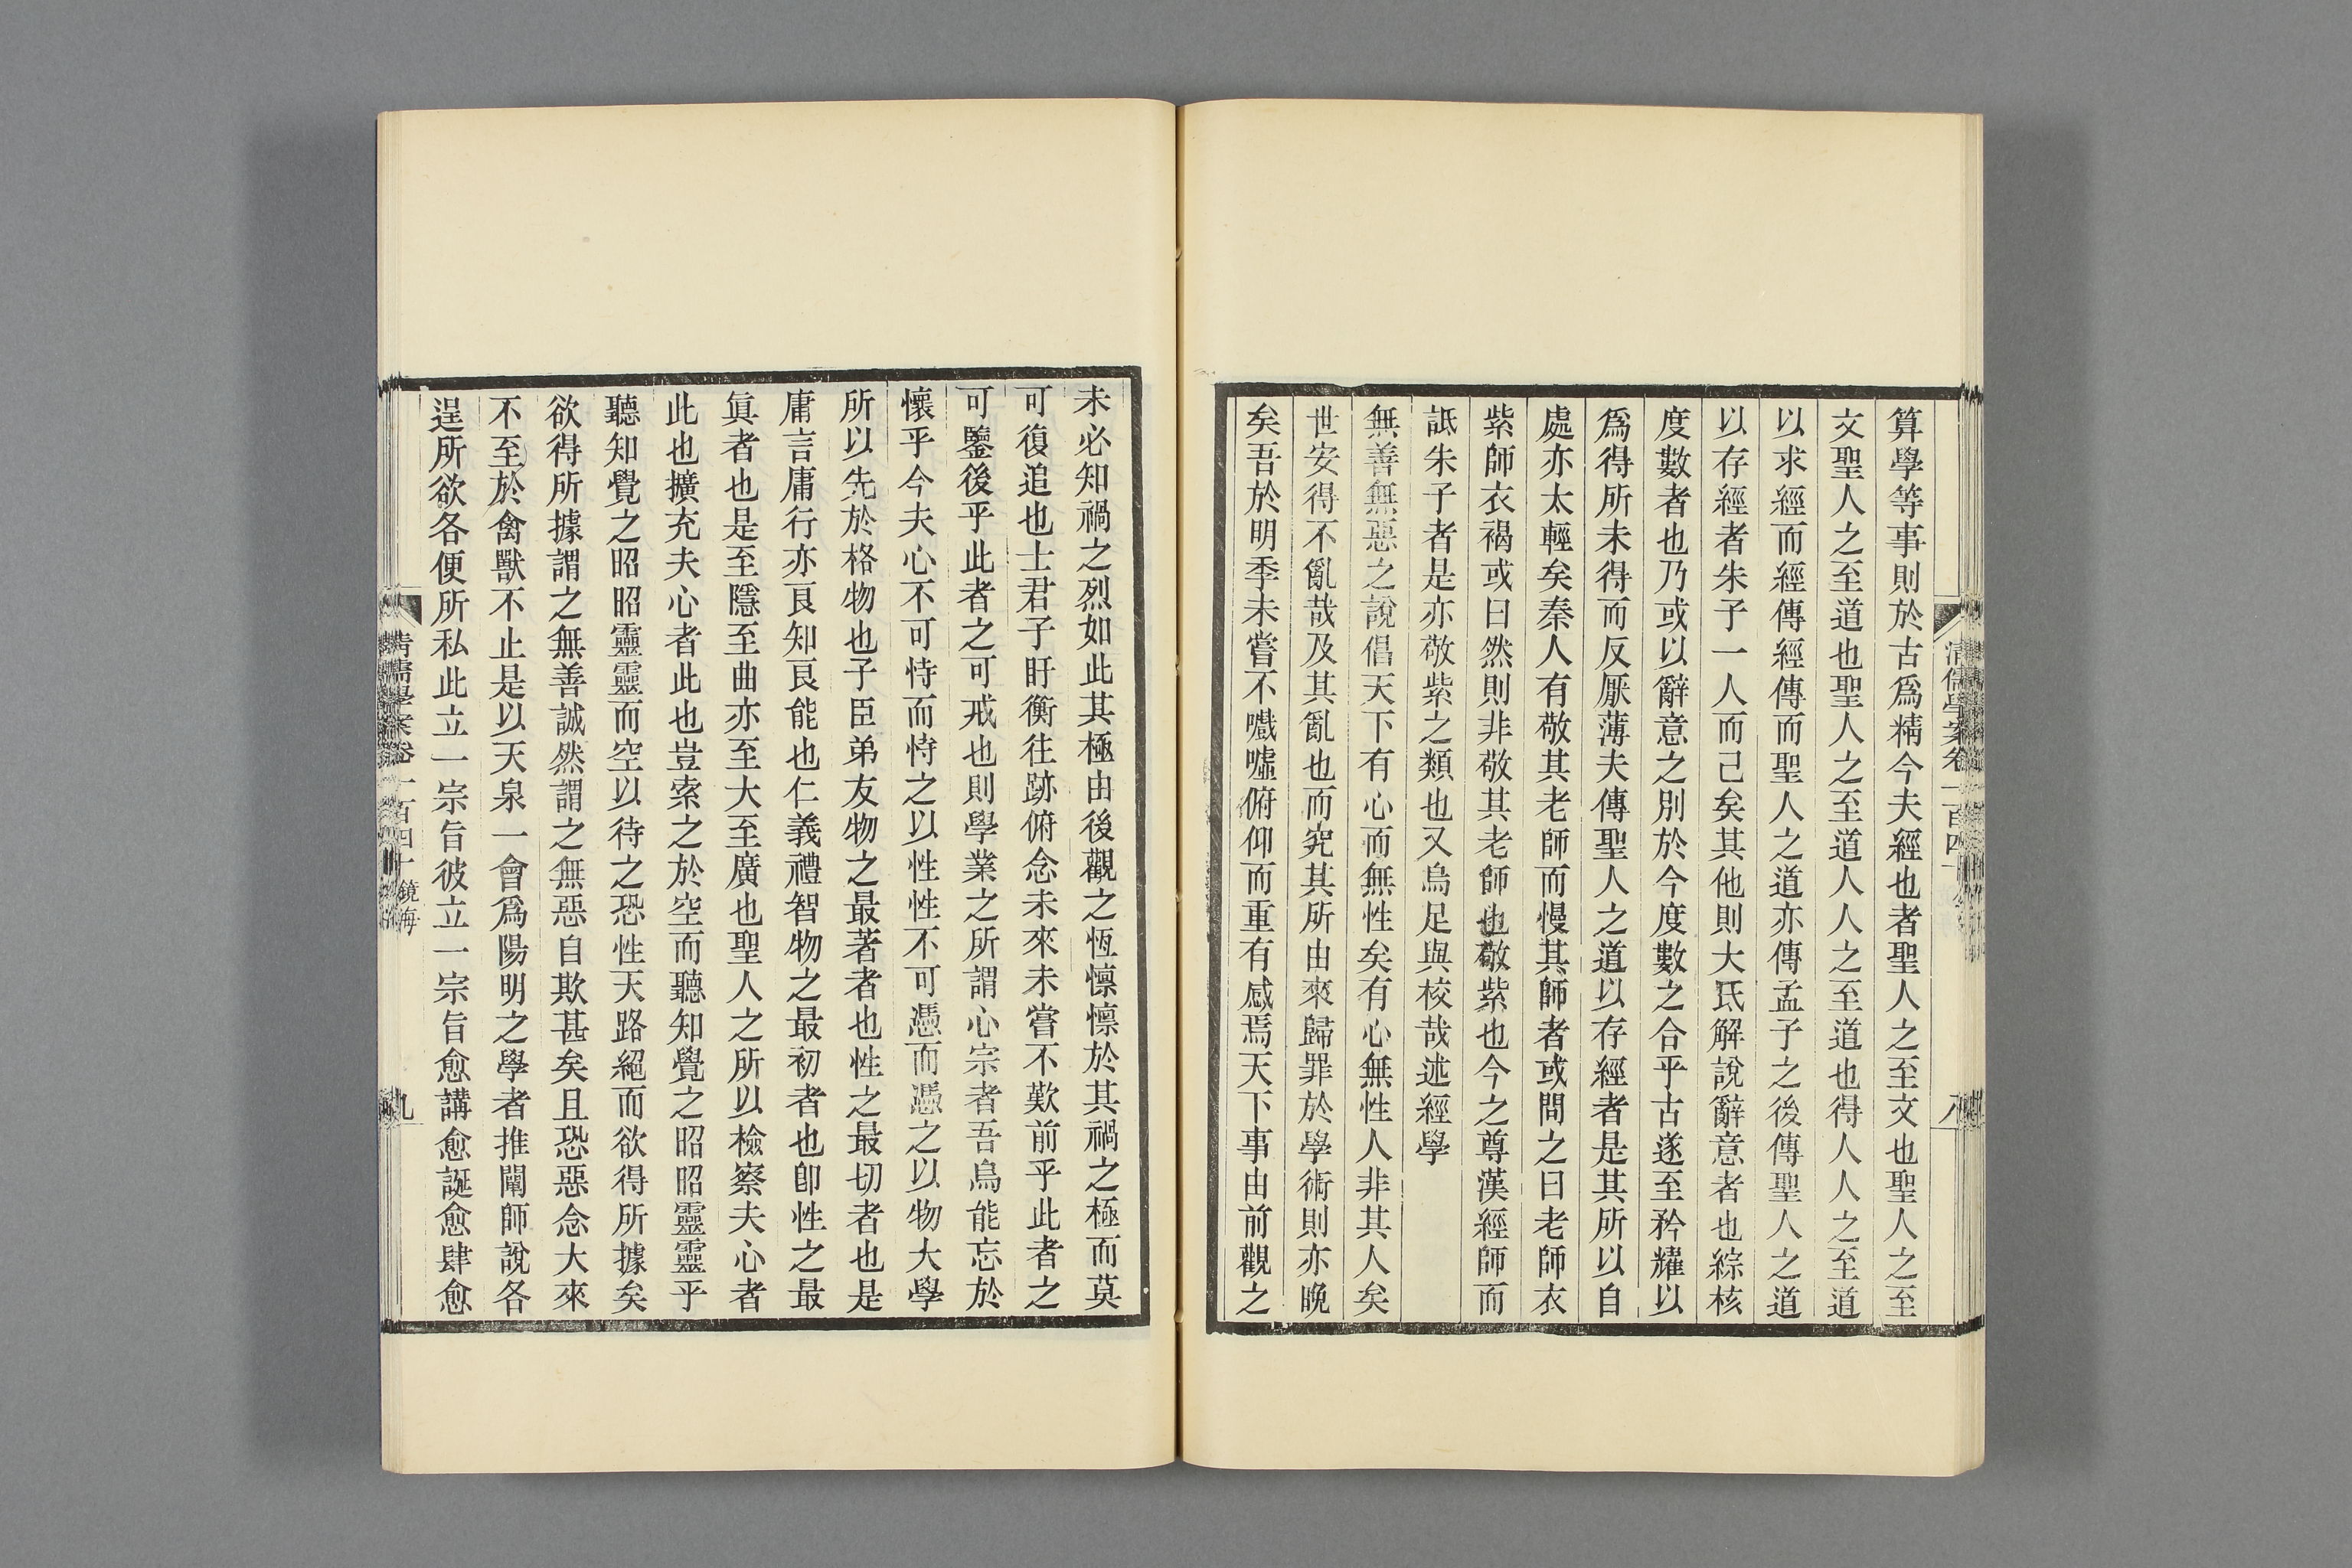 清儒學案卷一百四十
八
算學等事則於古爲精今夫經也者聖人之至文也聖人之至
文聖人之至道也聖人之至道人人之至道也得人人之至道
以求經而經傳經傳而聖人之道亦傳孟子之後傳聖人之道
以存經者朱子一人而己矣其他則大氐解說辭意者也綜核
度數者也乃或以辭意之別於今度數之合乎古遂至矜耀以
爲得所未得而反厭薄夫傳聖人之道以存經者是其所以自
處亦太輕矣秦人有敬其老師而慢其師者或問之曰老師衣
紫師衣褐或曰然則非敬其老師也敬紫也今之尊漢經師而
詆朱子者是亦敬紫之類也又烏足與校哉述經學
無善無惡之說倡天下有心而無性矣有心無性人非其人矣
世安得不亂哉及其亂也而究其所由來歸罪於學術則亦晚
矣吾於明季未嘗不嚱噓俯仰而重有感焉天下事由前觀之
未必知禍之烈如此其極由後觀之恆懍懍於其禍之極而莫
可復追也士君子盱衡往跡俯念未來未嘗不歎前乎此者之
可鑒後乎此者之可戒也則學業之所謂心宗者吾烏能忘於
懷乎今夫心不可恃而恃之以性性不可憑而憑之以物大學
所以先於格物也子臣弟友物之最著者也性之最切者也是
庸言庸行亦良知良能也仁義禮智物之最初者也卽性之最
眞者也是至隱至曲亦至大至廣也聖人之所以檢察夫心者
此也擴充夫心者此也豈索之於空而聽知覺之昭昭靈靈乎
聽知覺之昭昭靈靈而空以待之恐性天路絕而欲得所據矣
欲得所據謂之無善誠然謂之無惡自欺甚矣且恐惡念大來
不至於禽獸不止是以天泉一會爲陽明之學者推闡師說各
逞所欲各便所私此立一宗旨彼立一宗旨愈講愈誕愈肆愈
清儒學案卷一百四十 鏡海
九